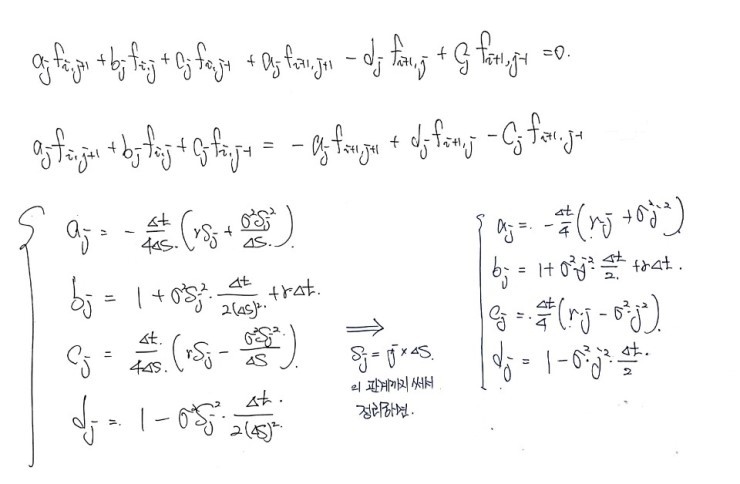 a_j f_{i,j+1} + b_j f_{i,j} + c_j f_{i,j-1} + a_j f_{i+1,j+1} - d_j f_{i+1,j} + c_j f_{i+1,j-1} = 0.
a_j f_{i,j+1} + b_j f_{i,j} + c_j f_{i,j-1} = - a_j f_{i+1,j+1} + d_j f_{i+1,j} - c_j f_{i+1,j-1}
a_j = - Δt/4ΔS. (rS_j + σ²S_j²/ΔS.)
b_j = 1 + σ²S_j² · Δt/2(ΔS)². + rΔt.
c_j = Δt./4ΔS. (rS_j - σ²S_j²/ΔS)
d_j = 1 - σ²S_j² · Δt./2(ΔS)².
⇒
S_j = j × ΔS.
의 관계까지 써서
정리하면.
a_j = - Δt/4 (rj + σ²j²)
b_j = 1 + σ²j² · Δt/2. + rΔt.
c_j = Δt/4 (rj - σ²j²)
d_j = 1 - σ²j² · Δt./2